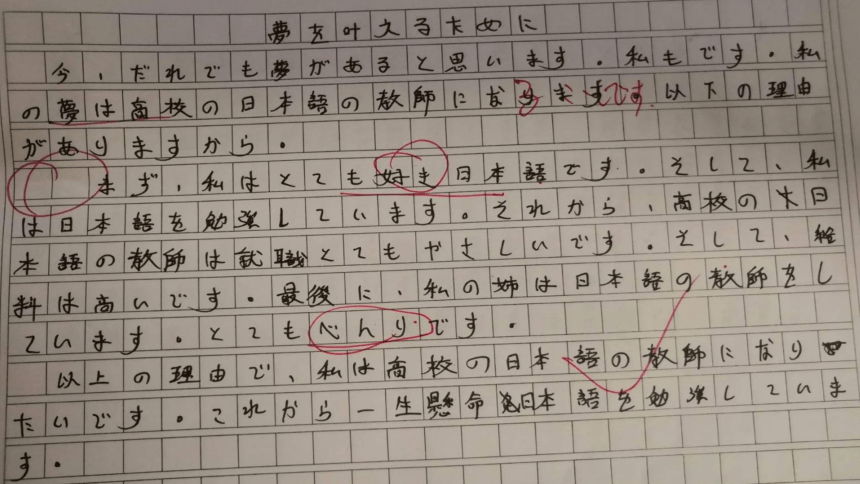 夢を叶えるために
今、だれでも夢があると思います。私もです。私
の夢は高校の日本語の教師になります です 以下の理由
がありますから。
まず、私はとても好き日本語です。そして、私
は日本語を勉強しています。それから、高校の大日
本語の教師は就職とてもやさしいです。そして、給
料は高いです。最後に、私の姉は日本語の教師をし
ています。とてもべんりです。
以上の理由で、私は高校の日本語の教師になり
たいです。これから一生懸命日本語を勉強していま
す。